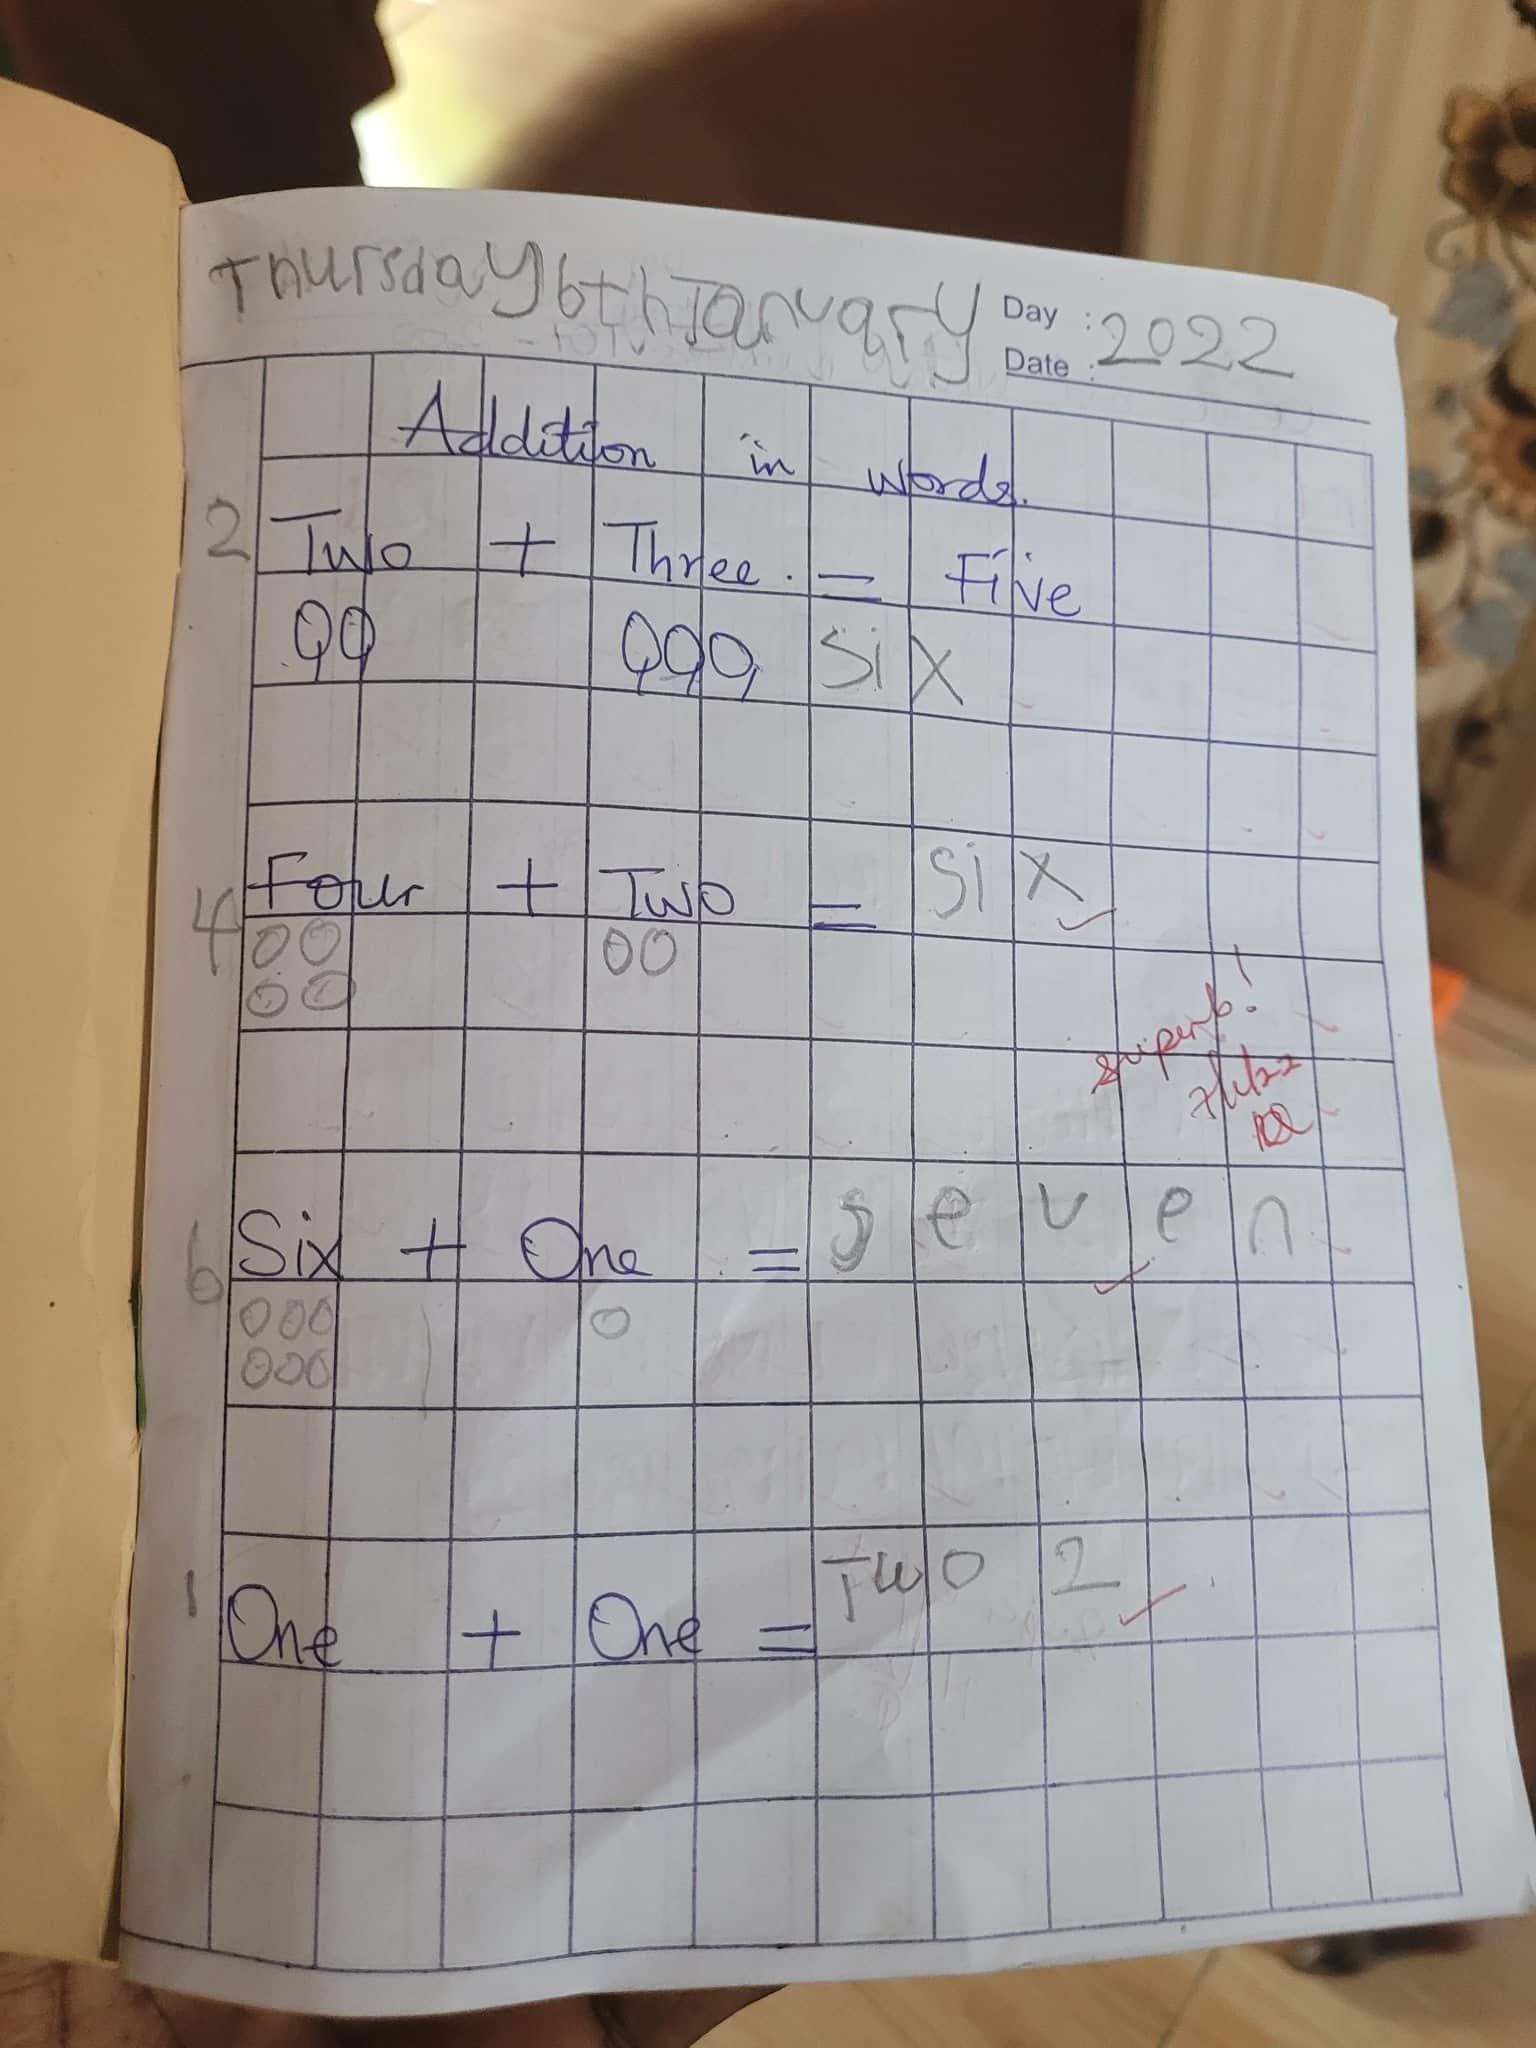 Thursday 6th January Day : 2022
Date :
Addition in words.
2 Two + Three. = Five
Six
4 Four + Two = Six
Superb!
6 Six + One = Seven
1 One + One = Two 2